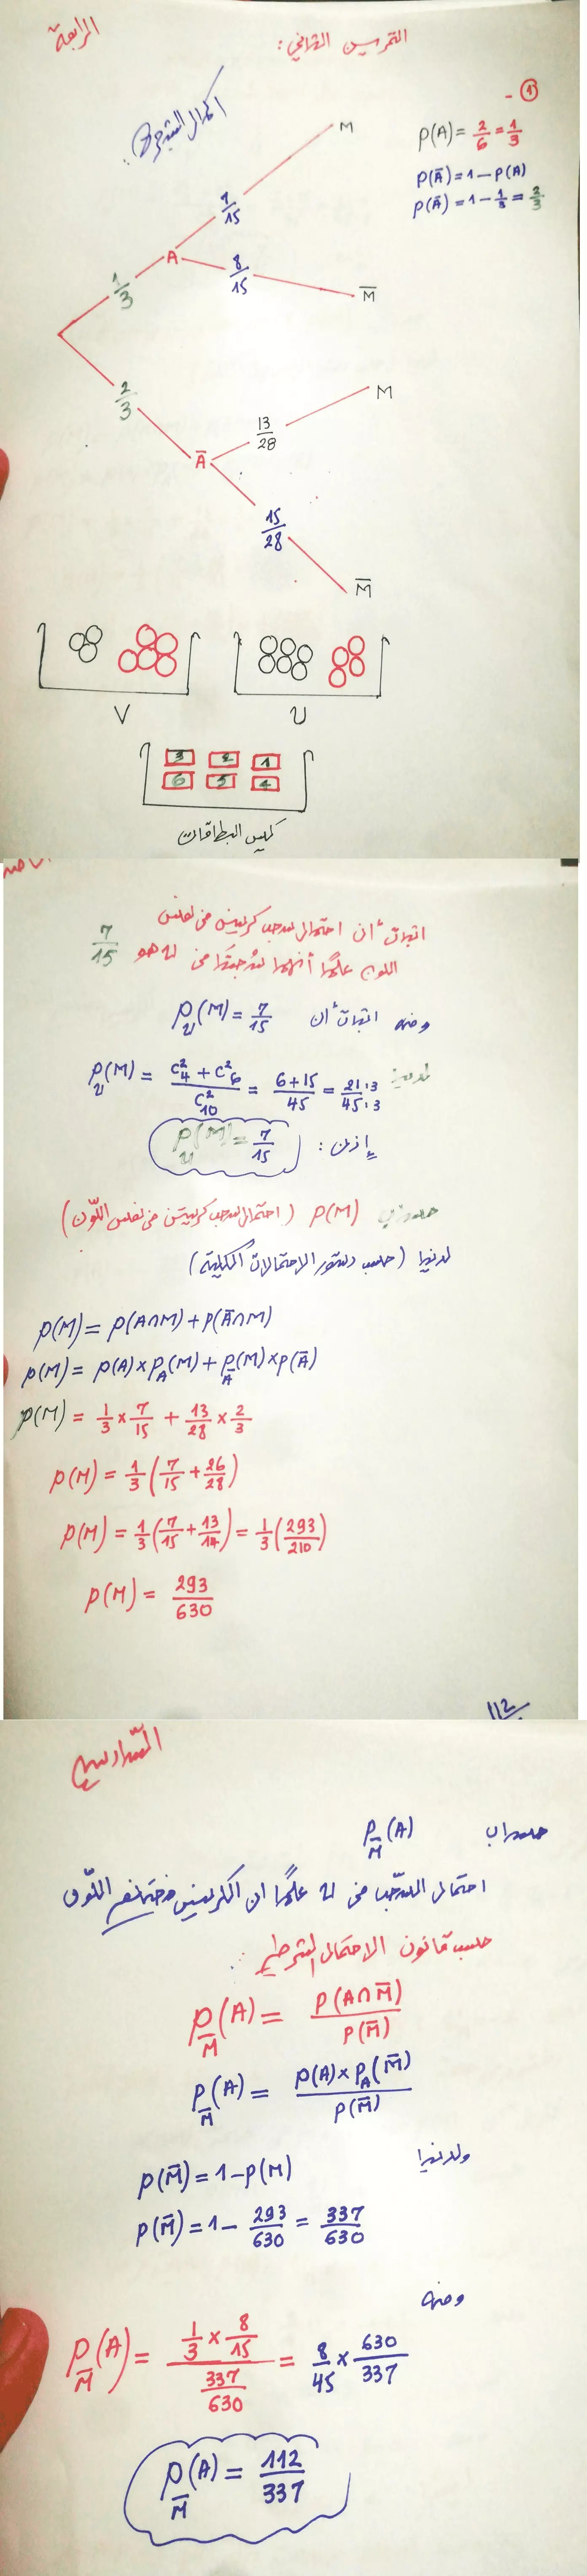 الرابعة
التمرين الثاني:
1 -
p(A) = 2/6 = 1/3
p(Ā) = 1 - p(A)
p(Ā) = 1 - 1/3 = 2/3
اكمال الشجرة:
M
7/15
A
8/15
M̄
1/3
2/3
M
13/28
Ā
15/28
M̄
V
U
3 2 1
6 5 4
كيس البطاقات
اثبات أن احتمال سحب كريتين من نفس
اللون علمًا أنهما سُحبتا من U هو 7/15
ومنه اثبات أن P_U(M) = 7/15
لدينا P_U(M) = (C²₄ + C²₆)/C²₁₀ = (6+15)/45 = 21:3/45:3
إذن: P_U(M) = 7/15
حساب p(M) (احتمال سحب كريتين من نفس اللّون)
لدينا (حسب دستور الاحتمالات الكلية)
p(M) = p(A∩M) + p(Ā∩M)
p(M) = p(A) × p_A(M) + p_Ā(M) × p(Ā)
p(M) = 1/3 × 7/15 + 13/28 × 2/3
p(M) = 1/3 (7/15 + 26/28)
p(M) = 1/3 (7/15 + 13/14) = 1/3 (293/210)
p(M) = 293/630
112
السّادسة
حساب P_M̄(A)
احتمال السّحب من U علمًا ان الكريتين مختلفتي اللّون
حسب قانون الاحتمال الشرطي:
P_M̄(A) = P(A∩M̄)/P(M̄)
P_M̄(A) = p(A) × p_A(M̄)/P(M̄)
ولدينا
p(M̄) = 1 - p(M)
p(M̄) = 1 - 293/630 = 337/630
ومنه
P_M̄(A) = (1/3 × 8/15)/(337/630) = 8/45 × 630/337
P_M̄(A) = 112/337